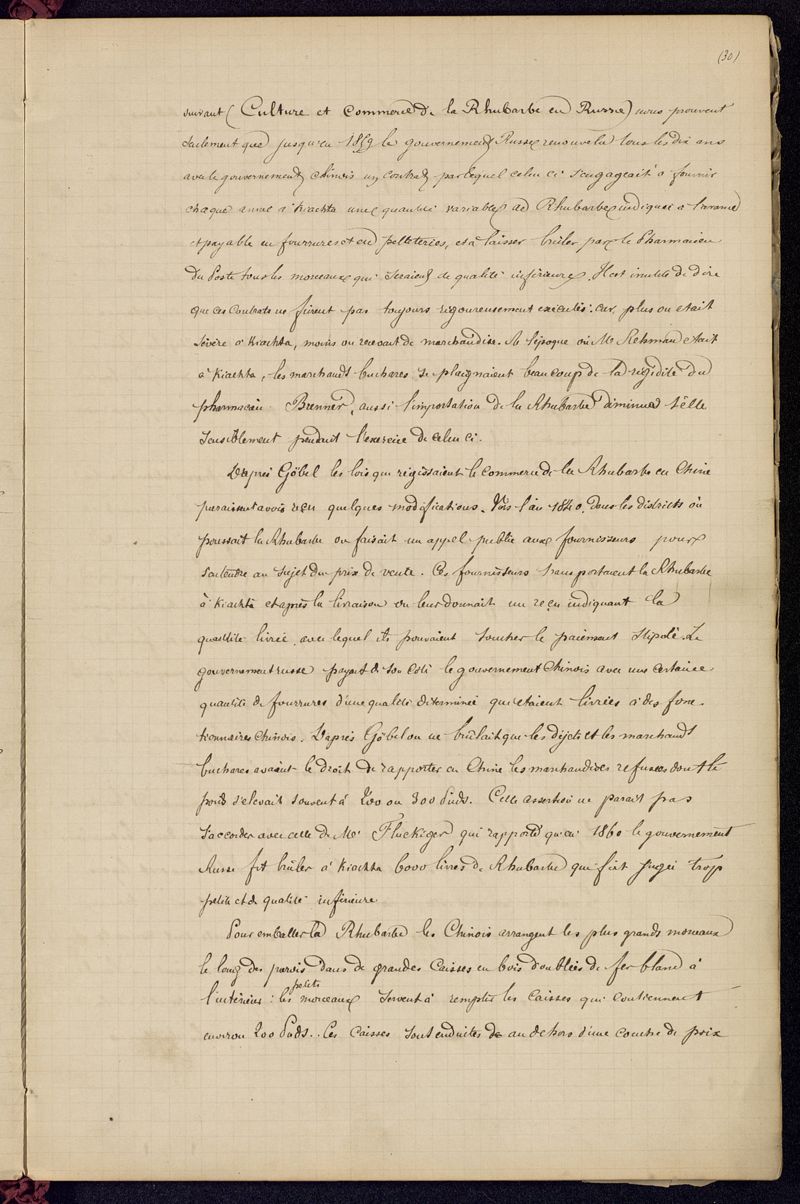 (30)
suivant (Culture et Commerce de la Rhubarbe en Russie) nous prouvent
facilement que jusqu'en 1859 le gouvernement Russe renouvela tous les dix ans
avec le gouvernement chinois un contrat par lequel celui ci s'engageait à fournir
chaque année à Kiachta une quantité variable de Rhubarbe indiquée à l'avance
et payable en fourrures et en pelleteries, et à laisser brûler par le Pharmacien
du Poste tous les morceaux qui seraient de qualité inférieure. Il est inutile de dire
que ces Contrats ne furent pas toujours rigoureusement exécutés: car plus on était
sévère à Kiachta, moins on recevait de marchandise. A l'époque où Mr Rehman était
à Kiachta, les marchands buchares se plaignaient beaucoup de la rigidité du
pharmacien Brenner, aussi l'importation de la Rhubarbe diminua t'elle
sensiblement pendant l'exercice de celui ci.
D'après Göbel les lois qui régissaient le commerce de la Rhubarbe en Chine
paraissent avoir reçu quelques modifications. Vers l'an 1840, dans les districts où
poussait la Rhubarbe on faisait un appel public aux fournisseurs pour
s'entendre au sujet du prix de vente. Ces fournisseurs transportaient la Rhubarbe
à Kiachta et après la livraison on leur donnait un reçu indiquant la
quantité livrée avec lequel ils pouvaient toucher le paiement stipulé. Le
gouvernement russe payait de son côté le gouvernement Chinois avec une certaine
quantité de fourrures d'une qualité déterminée qui étaient livrées à des fonc-
tionnaires chinois. D'après Göbel on ne brûlait que les déjets et les marchands
buchares avaient le droit de rapporter en Chine les marchandises refusées dont le
poids s'élevait souvent à 200 ou 300 Puds. Cette assertion ne parait pas
s'accorder avec celle de Mr Fluckiger qui rapporte qu'en 1860 le gouvernement
Russe fit brûler à Kiachta 6000 livres de Rhubarbe qui fut jugée trop
petite et de qualité inférieure
Pour emballer la Rhubarbe les Chinois arrangent les plus grands morceaux
le long des parois dans de grandes Caisses en bois doublées de fer blanc à
l'intérieur: les petits morceaux servent à remplir les caisses qui contiennent
environ 200 Puds. Ces Caisses sont enduites de au dehors d'une couche de poix